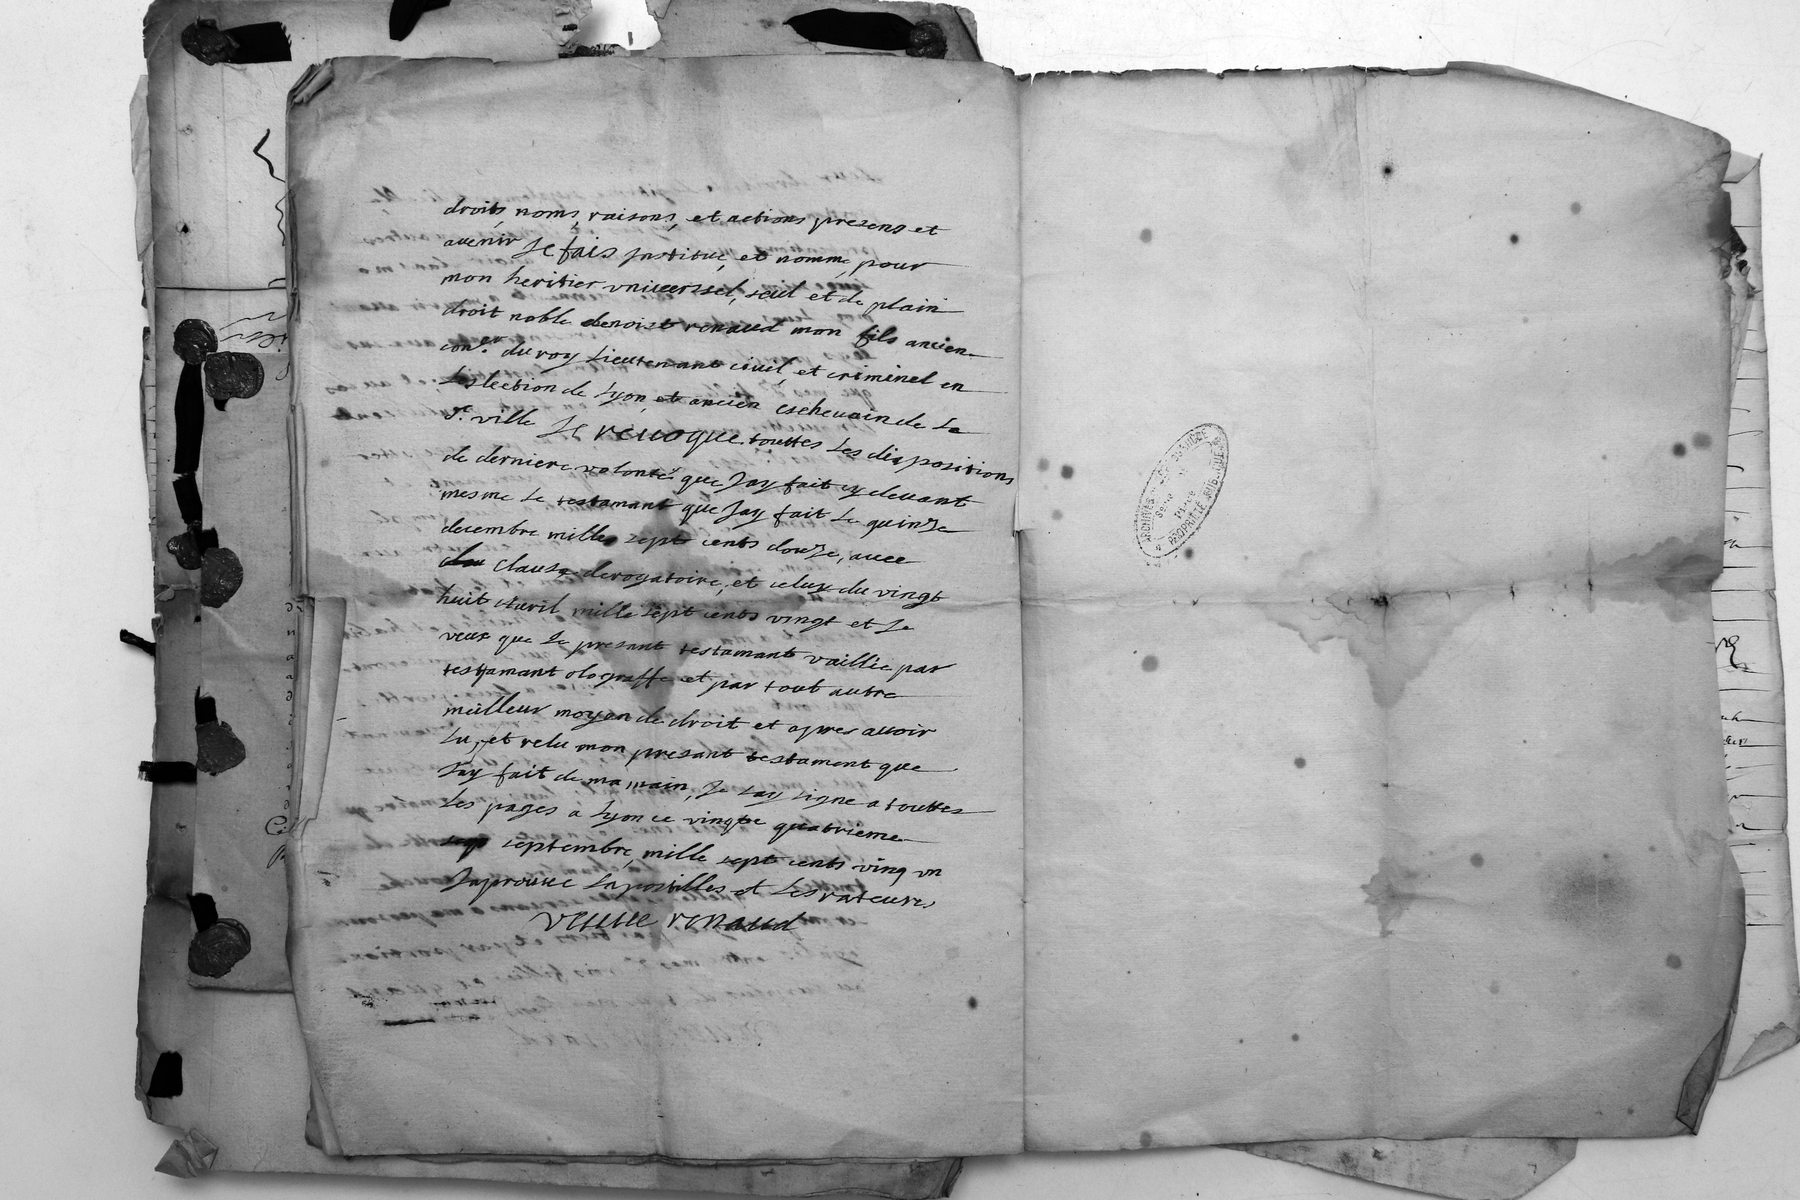 droits, noms, raisons, et actions presens et
auenir Je fais Jnstitue, et nomme, pour
mon heritier vniuersel, seul et de plain
droit noble benoist renaud mon fils ancien
con.er du roy Lieutenant ciuil, et criminel en
Leslection de Lyon, et ancien escheuain de La
d.e ville Je reuoque touttes Les dispositions
de derniere volonté que Jay fait cy deuant
mesme Le testamant que Jay fait Le quinze
decembre mille sept cents douze, auec
clause derogatoire, et celuy du vingt
huit auril mille sept cents vingt et Je
veux que Le presant testamant vaillie par
testamant olograffe et par tout autre
meilleur moyen de droit et apres auoir
Lu, et relu mon presant testament que
Jay fait de ma main, Je Lay signe a touttes
Les pages a Lyon ce vingte quatrieme
septembre, mille sept cents ving vn
Japrouue Lapostilles et Les rateures
veuue renaud
ARCHIVES
PROPRIÉTÉ PUBLIQUE